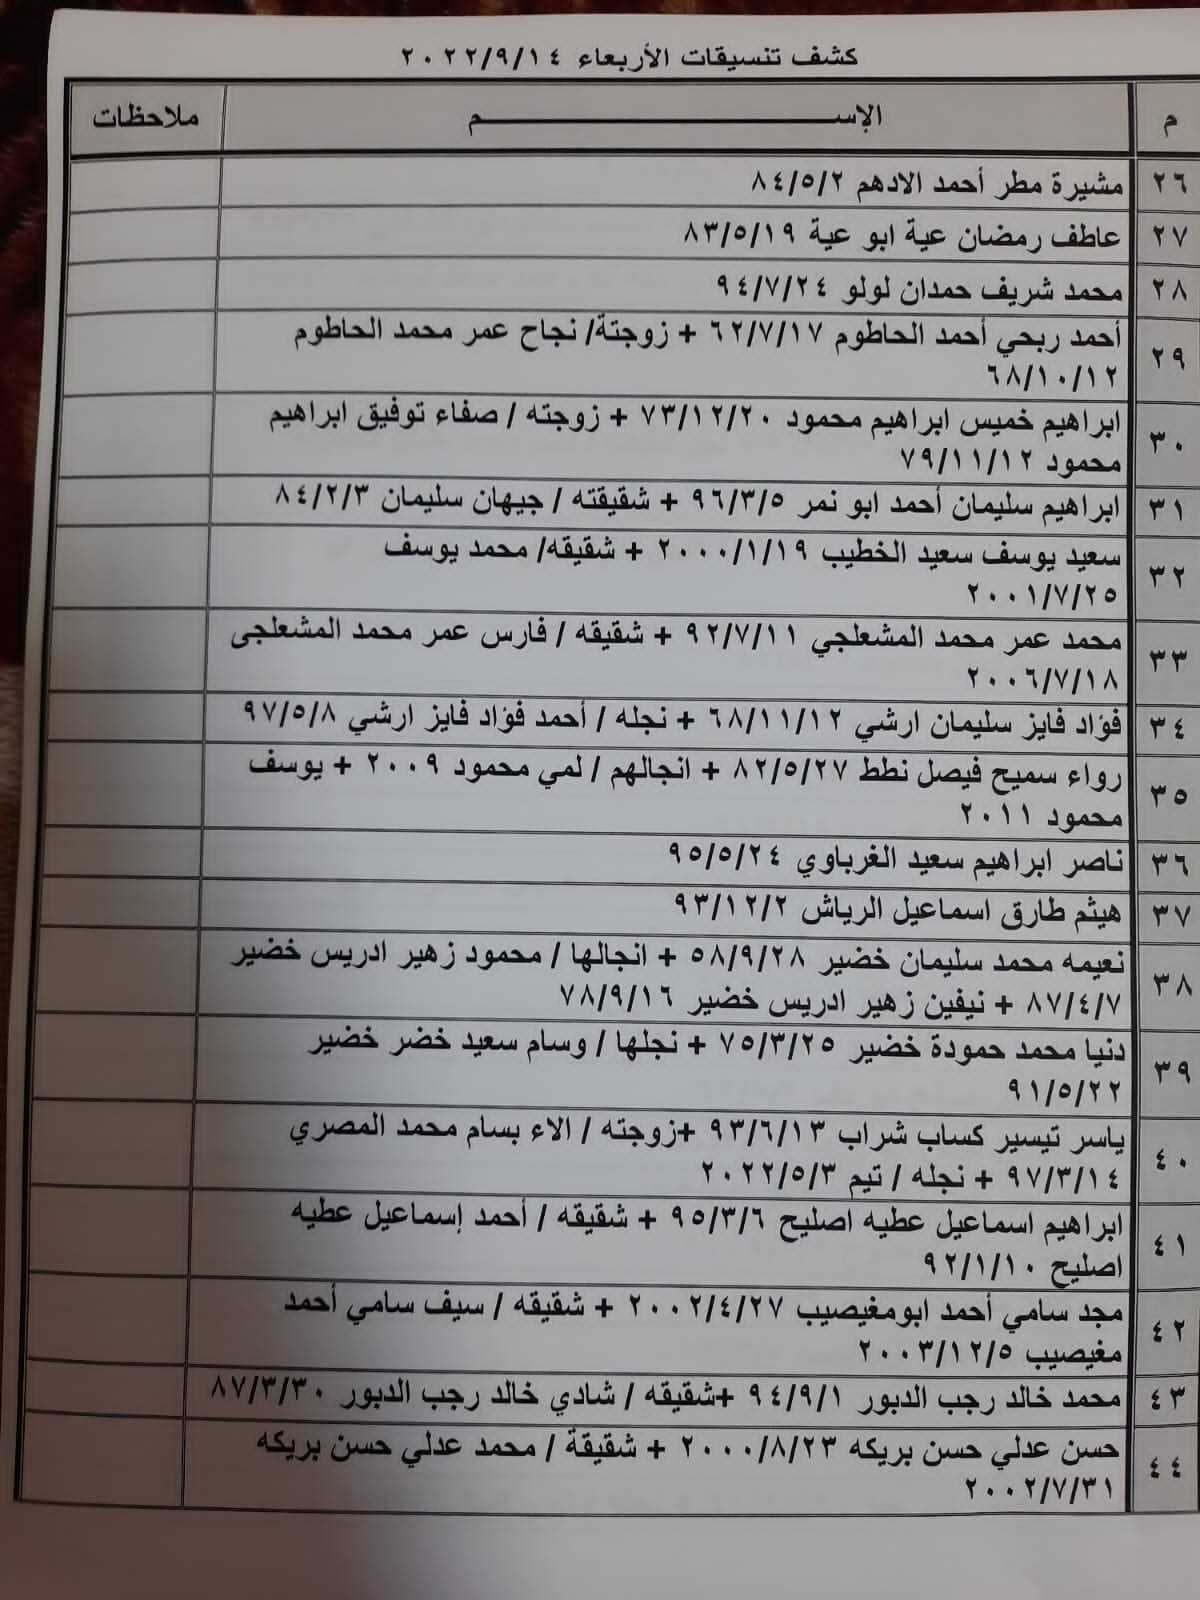 كشف تنسيقات الأربعاء ٢٠٢٢/٩/١٤
م الإســـــم ملاحظات
٢٦ مشيرة مطر أحمد الادهم ٨٤/٥/٢
٢٧ عاطف رمضان عية ابو عية ٨٣/٥/١٩
٢٨ محمد شريف حمدان لولو ٩٤/٧/٢٤
٢٩ أحمد ربحي أحمد الحاطوم ٦٢/٧/١٧ + زوجتة/ نجاح عمر محمد الحاطوم
٦٨/١٠/١٢
٣٠ ابراهيم خميس ابراهيم محمود ٧٣/١٢/٢٠ + زوجته / صفاء توفيق ابراهيم
محمود ٧٩/١١/١٢
٣١ ابراهيم سليمان أحمد ابو نمر ٩٦/٣/٥ + شقيقته / جيهان سليمان ٨٤/٢/٣
٣٢ سعيد يوسف سعيد الخطيب ٢٠٠٠/١/١٩ + شقيقه/ محمد يوسف
٢٠٠١/٧/٢٥
٣٣ محمد عمر محمد المشعلجي ٩٢/٧/١١ + شقيقه / فارس عمر محمد المشعلجى
٢٠٠٦/٧/١٨
٣٤ فؤاد فايز سليمان ارشي ٦٨/١١/١٢ + نجله / أحمد فؤاد فايز ارشي ٩٧/٥/٨
٣٥ رواء سميح فيصل نطط ٨٢/٥/٢٧ + انجالهم / لمي محمود ٢٠٠٩ + يوسف
محمود ٢٠١١
٣٦ ناصر ابراهيم سعيد الغرباوي ٩٥/٥/٢٤
٣٧ هيثم طارق اسماعيل الرياش ٩٣/١٢/٢
٣٨ نعيمه محمد سليمان خضير ٥٨/٩/٢٨ + انجالها / محمود زهير ادريس خضير
٨٧/٤/٧ + نيفين زهير ادريس خضير ٧٨/٩/١٦
٣٩ دنيا محمد حمودة خضير ٧٥/٣/٢٥ + نجلها / وسام سعيد خضر خضير
٩١/٥/٢٢
٤٠ ياسر تيسير كساب شراب ٩٣/٦/١٣ +زوجته / الاء بسام محمد المصري
٩٧/٣/١٤ + نجله / تيم ٢٠٢٢/٥/٣
٤١ ابراهيم اسماعيل عطيه اصليح ٩٥/٣/٦ + شقيقه / أحمد إسماعيل عطيه
اصليح ٩٢/١/١٠
٤٢ مجد سامي أحمد ابومغيصيب ٢٠٠٢/٤/٢٧ + شقيقه / سيف سامي أحمد
مغيصيب ٢٠٠٣/١٢/٥
٤٣ محمد خالد رجب الدبور ٩٤/٩/١ +شقيقه / شادي خالد رجب الدبور ٨٧/٣/٣٠
٤٤ حسن عدلي حسن بريكه ٢٠٠٠/٨/٢٣ + شقيقة / محمد عدلي حسن بريكه
٢٠٠٢/٧/٣١